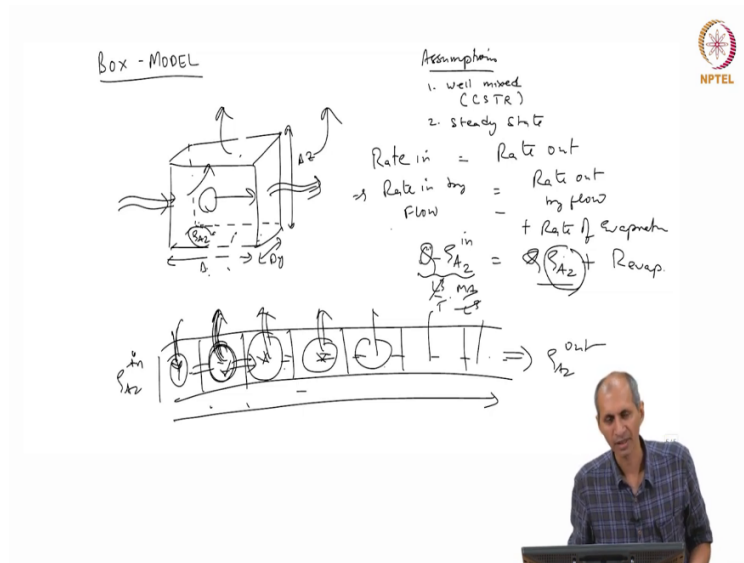 BOX - MODEL
Assumptions
1. Well mixed
(CSTR)
2. Steady State
NPTEL
Rate in = Rate out
⇒ Rate in by = Rate out
Flow by flow
+ Rate of Evaporation
Q ρA2 in = Q ρA2 + Revap.
L³ M2
T L³
Δz
ρA2
Δy
ρA2 in
ρA2 out